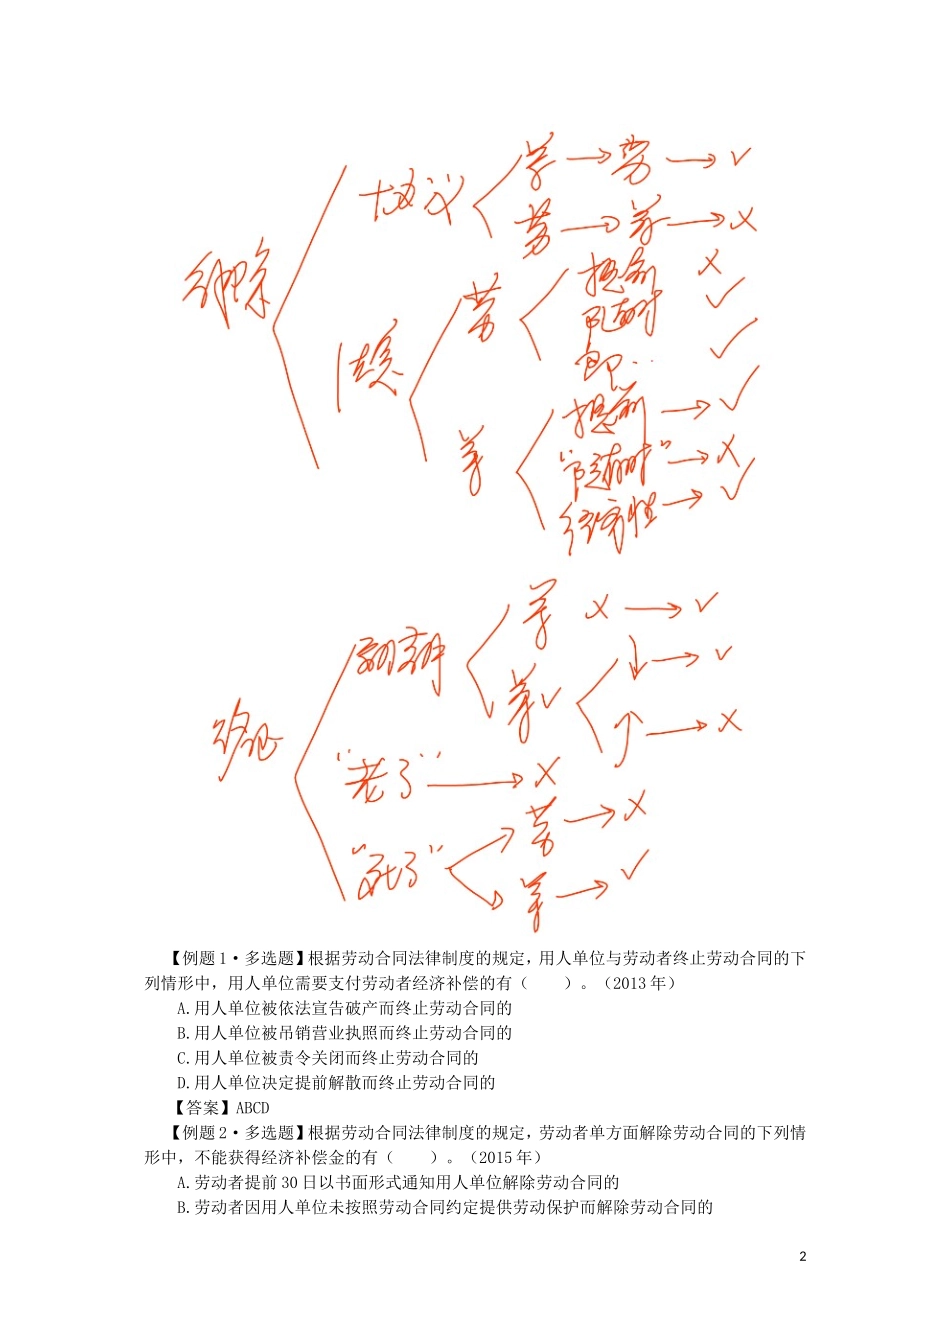 解除
协议
单→劳→√
劳→单→×
法定
劳
提前 ×
随时 √
即.. √
单
提前→√
“随时”→×
经济性→√
终止
期满
单 ×→√
单√
↓→√
↑→×
“老了”→×
“死了”
劳→×
单→√
【例题1·多选题】根据劳动合同法律制度的规定，用人单位与劳动者终止劳动合同的下
列情形中，用人单位需要支付劳动者经济补偿的有（　　）。（2013年）
A.用人单位被依法宣告破产而终止劳动合同的
B.用人单位被吊销营业执照而终止劳动合同的
C.用人单位被责令关闭而终止劳动合同的
D.用人单位决定提前解散而终止劳动合同的
【答案】ABCD
【例题2·多选题】根据劳动合同法律制度的规定，劳动者单方面解除劳动合同的下列情
形中，不能获得经济补偿金的有（　　）。（2015年）
A.劳动者提前30日以书面形式通知用人单位解除劳动合同的
B.劳动者因用人单位未按照劳动合同约定提供劳动保护而解除劳动合同的
2